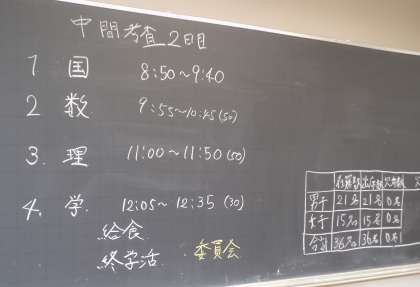 中間考査 2日目
1 国 8:50〜9:40
2 数 9:55〜10:45(50)
3. 理 11:00〜11:50(50)
4. 学 12:05〜12:35(30)
給食
終学活 委員会
在籍数 出席数 欠席数
男子 21名 21名 0名
女子 15名 15名 0名
合計 36名 36名 0名